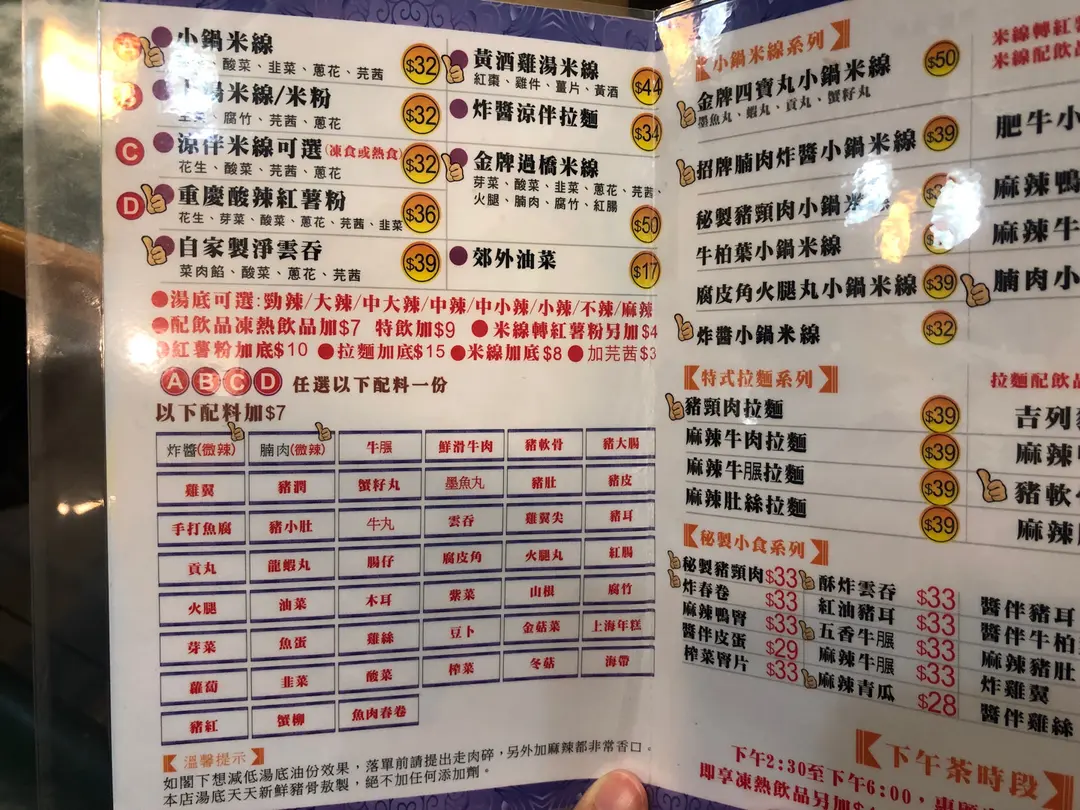 A 小鍋米線 $32
酸菜、韭菜、蔥花、芫茜
湯米線/米粉 $32
腐竹、芫茜、蔥花
C 涼伴米線可選(凍食或熱食) $32
花生、酸菜、蔥花、芫茜
D 重慶酸辣紅薯粉 $36
花生、芽菜、酸菜、蔥花、芫茜、韭菜
自家製淨雲吞 $39
菜肉餡、酸菜、蔥花、芫茜
黃酒雞湯米線 $44
紅棗、雞件、薑片、黃酒
炸醬涼伴拉麵 $34
金牌過橋米線
芽菜、酸菜、韭菜、蔥花、芫茜、
火腿、腩肉、腐竹、紅腸
$50
郊外油菜 $17
●湯底可選:勁辣/大辣/中大辣/中辣/中小辣/小辣/不辣/麻辣
●配飲品凍熱飲品加$7 特飲加$9 ●米線轉紅薯粉另加$4
紅薯粉加底$10 ●拉麵加底$15 ●米線加底$8 ●加芫茜$3
A B C D 任選以下配料一份
以下配料加$7
炸醬(微辣) 腩肉(微辣) 牛𦟌 鮮滑牛肉 豬軟骨 豬大腸
雞翼 豬潤 蟹籽丸 墨魚丸 豬肚 豬皮
手打魚腐 豬小肚 牛丸 雲吞 雞翼尖 豬耳
貢丸 龍蝦丸 腸仔 腐皮角 火腿丸 紅腸
火腿 油菜 木耳 紫菜 山根 腐竹
芽菜 魚蛋 雞絲 豆卜 金菇菜 上海年糕
蘿蔔 韭菜 酸菜 榨菜 冬菇 海帶
豬紅 蟹柳 魚肉春卷
溫馨提示
如閣下想減低湯底油份效果，落單前請提出走肉碎，另外加麻辣都非常香口。
本店湯底天天新鮮豬骨敖製，絕不加任何添加劑。
小鍋米線系列
金牌四寶丸小鍋米線 $50
墨魚丸、蝦丸、貢丸、蟹籽丸
招牌腩肉炸醬小鍋米線 $39
秘製豬頸肉小鍋米線
牛柏葉小鍋米線
腐皮角火腿丸小鍋米線 $39
炸醬小鍋米線 $32
特式拉麵系列
豬頸肉拉麵 $39
麻辣牛肉拉麵 $39
麻辣牛𦟌拉麵 $39
麻辣肚絲拉麵 $39
秘製小食系列
秘製豬頸肉 $33
炸春卷 $33
麻辣鴨腎 $33
醬伴皮蛋 $29
榨菜腎片 $33
酥炸雲吞 $33
紅油豬耳 $33
五香牛𦟌 $33
麻辣牛𦟌 $33
麻辣青瓜 $28
米線轉紅
米線配飲
肥牛小
麻辣鴨
麻辣牛
腩肉小
拉麵配飲品
吉列
麻辣
豬軟
麻辣
醬伴豬耳
醬伴牛柏
麻辣豬肚
炸雞翼
醬伴雞絲
下午茶時段
下午2:30至下午6:00，
即享凍熱飲品另加$